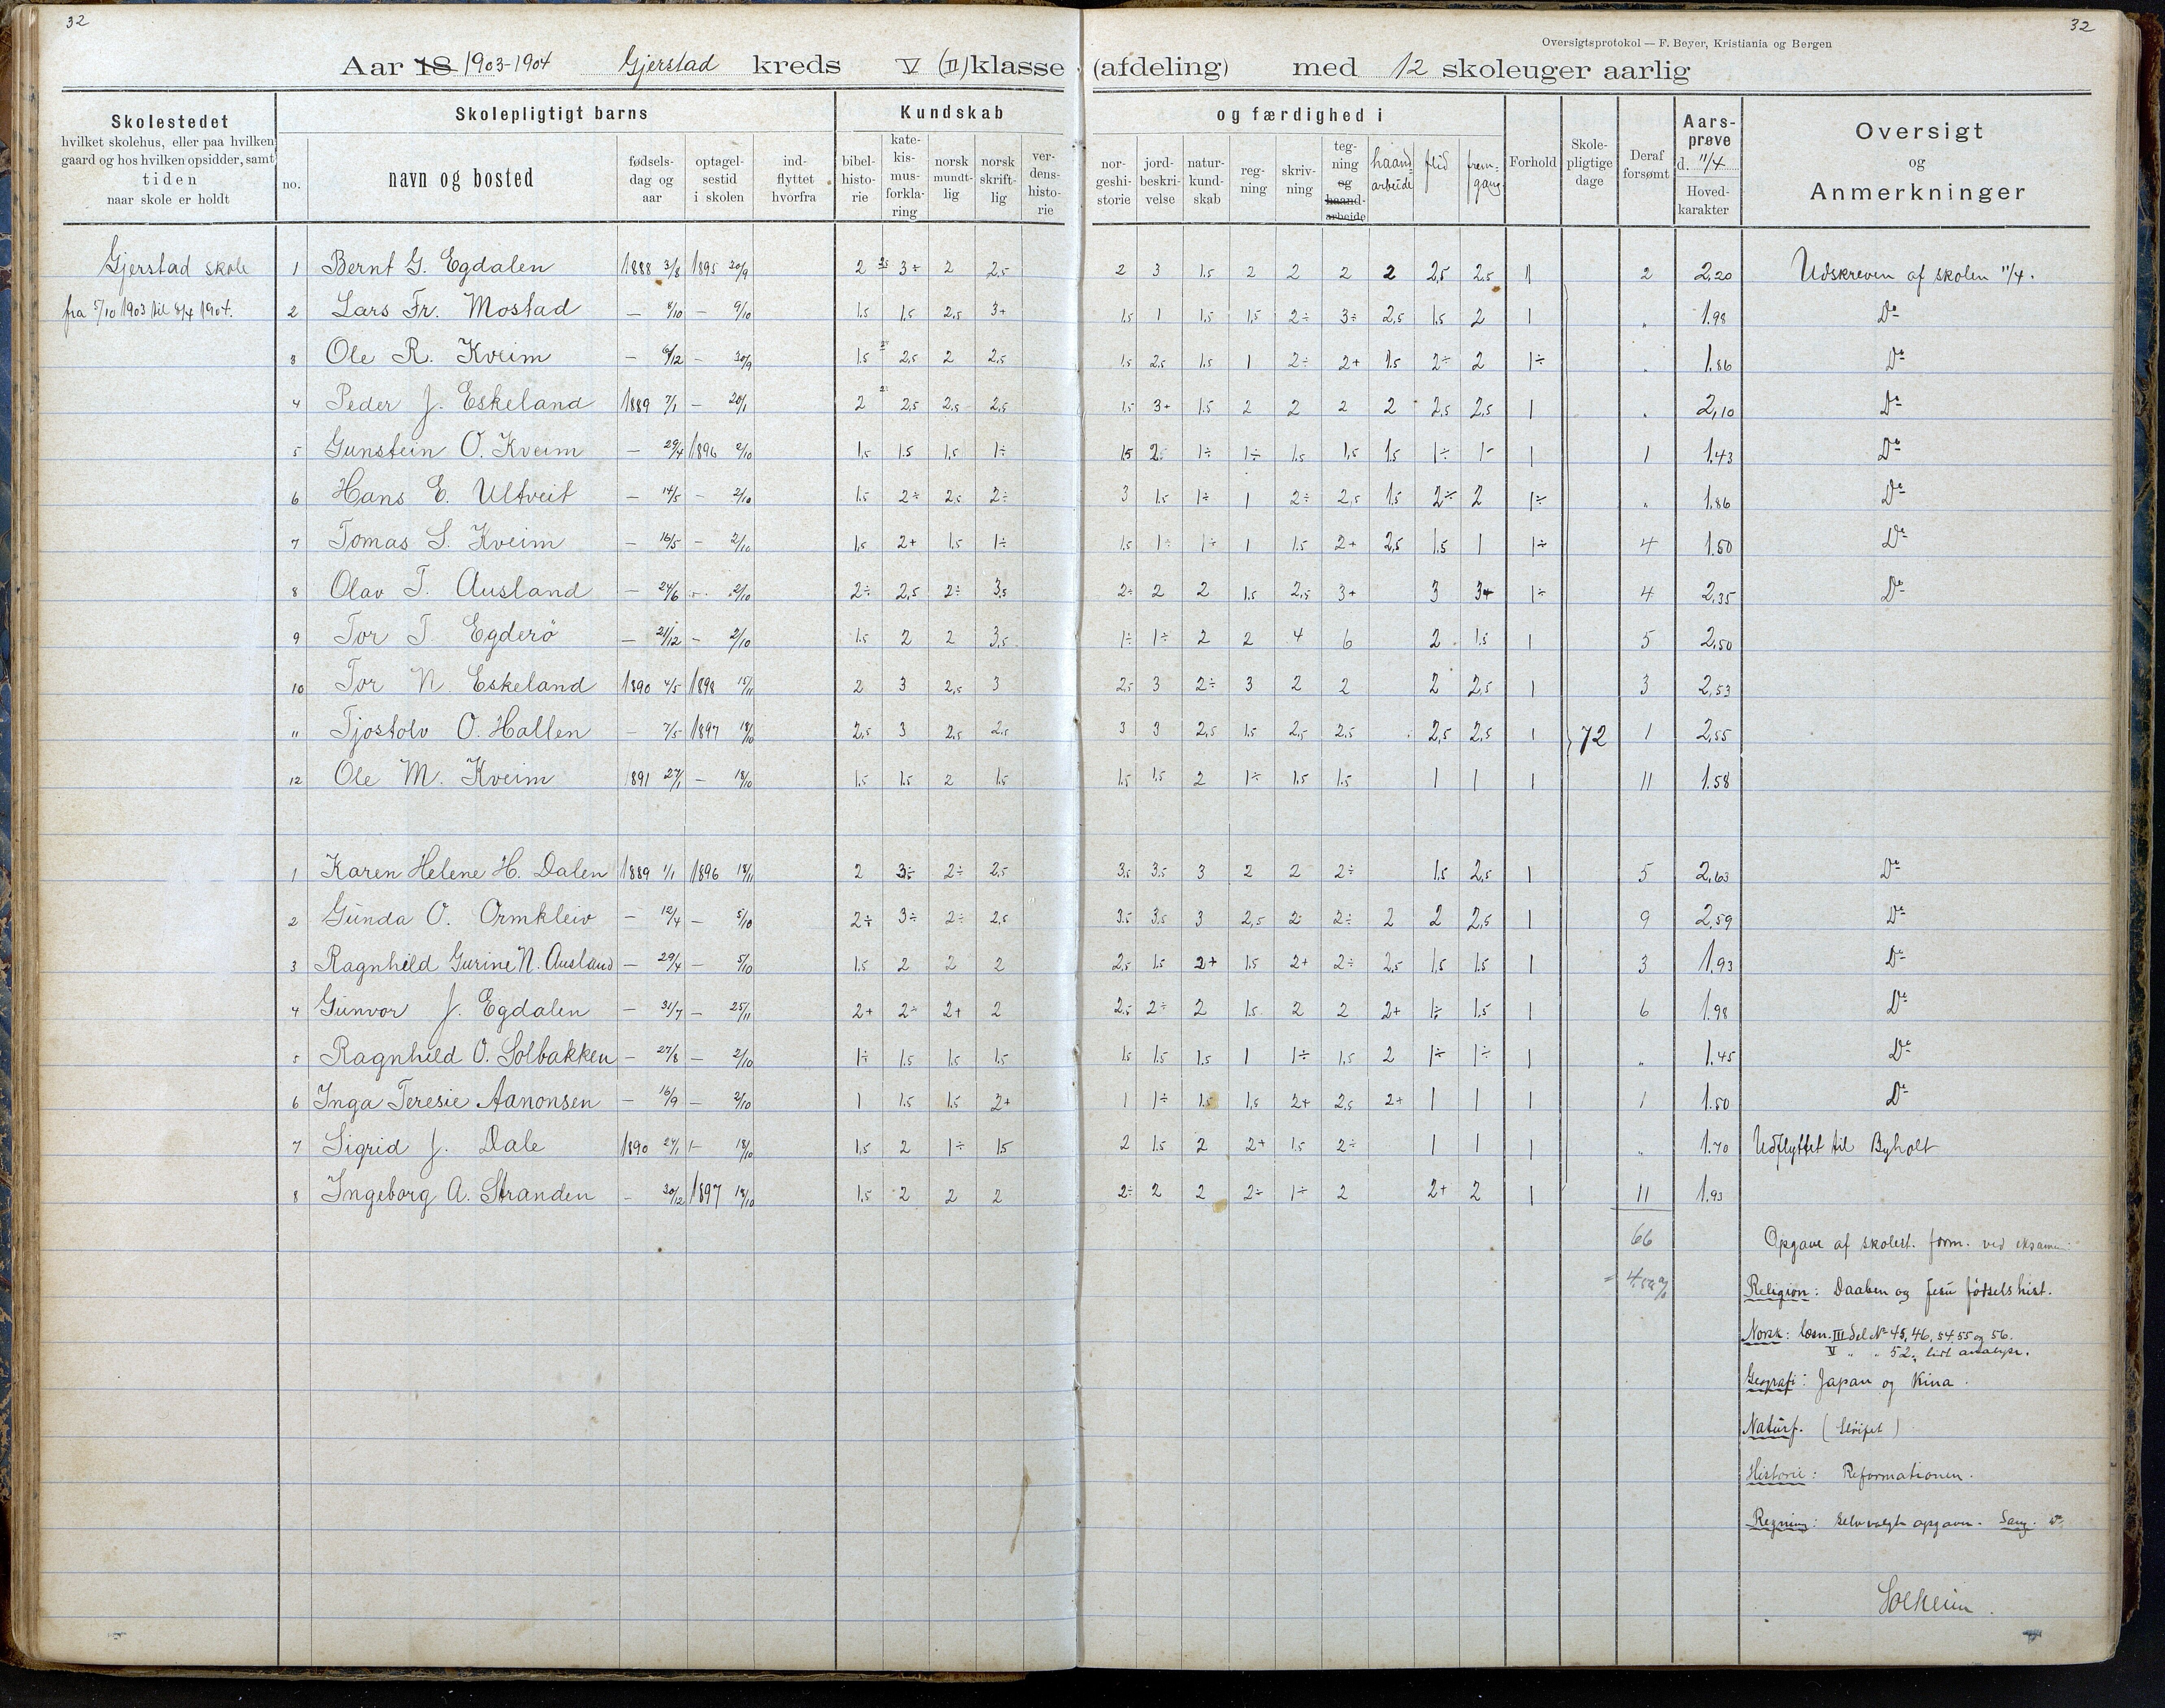 32
32
Oversigtsprotokol — F. Beyer, Kristiania og Bergen
Aar 18 1903-1904 Gjerstad kreds V (II) klasse (afdeling) med 12 skoleuger aarlig
Skolestedet
hvilket skolehus, eller paa hvilken
gaard og hos hvilken opsidder, samt
tiden
naar skole er holdt
Skolepligtigt barns
no.
navn og bosted
fødsels-
dag og
aar
optagel-
sestid
i skolen
ind-
flyttet
hvorfra
Kundskab
bibel-
histo-
rie
kate-
kis-
mus-
forkla-
ring
norsk
mundt-
lig
norsk
skrift-
lig
ver-
dens-
histo-
rie
og færdighed i
nor-
geshi-
storie
jord-
beskri-
velse
natur-
kund-
skab
reg-
ning
skriv-
ning
teg-
ning
og
haand-
arbeide
haand
arbeide
flid
frem-
gang
Forhold
Skole-
pligtige
dage
Deraf
forsømt
Aars-
prøve
d. 11/4
Hoved-
karakter
Oversigt
og
Anmerkninger
Gjerstad skole 1 Bernt G. Egdalen 1888 3/8 1895 30/9 2 2.5 3÷ 2 2.5 2 3 1.5 2 2 2 2 2,5 2.5 1 2 2,20 Udskreven af skolen 11/4.
fra 5/10 1903 til 8/4 1904. 2 Lars Fr. Mostad — 8/10 — 9/10 1.5 1.5 2.5 3+ 1.5 1 1.5 1,5 2÷ 3÷ 2,5 1.5 2 1 " 1.98 Do
3 Ole R. Kveim — 6/12 — 30/9 1.5 2,5 2 2.5 1.5 2.5 1.5 1 2÷ 2+ 1.5 2÷ 2 1÷ " 1.86 Do
4 Peder J. Eskeland 1889 7/1 — 20/1 2 2.5 2.5 2,5 1.5 3+ 1.5 2 2 2 2 2,5 2,5 1 " 2,10 Do
5 Gunstein O. Kveim — 29/4 1896 2/10 1,5 1.5 1,5 1÷ 15 2÷ 1÷ 1÷ 1.5 1,5 1.5 1÷ 1÷ 1 1 1.43 Do
6 Hans E. Ultveit — 14/5 — 2/10 1.5 2÷ 2,5 2÷ 3 1.5 1÷ 1 2÷ 2,5 1.5 2÷ 2 1÷ " 1.86 Do
7 Tomas S. Kveim — 16/5 — 2/10 1,5 2+ 1.5 1÷ 1.5 1÷ 1÷ 1 1.5 2+ 2,5 1.5 1 1÷ 4 1.50 Do
8 Olav T. Ausland — 24/6 — 2/10 2÷ 2,5 2÷ 3,5 2÷ 2 2 1.5 2,5 3+ 3 3+ 1÷ 4 2,35 Do
9 Tor T Egderö — 21/12 — 2/10 1.5 2 2 3,5 1÷ 1÷ 2 2 4 6 2 1.5 1 5 2,50
10 Tor N Eskeland 1890 4/5 1898 15/11 2 3 2,5 3 2,5 3 2÷ 3 2 2 2 2,5 1 3 2,53
11 Tjostolv O. Hallen — 7/5 1897 18/10 2,5 3 2,5 2.5 3 3 2,5 1.5 2,5 2.5 2,5 2,5 1 72 1 2,55
12 Ole M. Kveim 1891 27/1 — 18/10 1.5 1.5 2 1.5 1.5 1.5 2 1÷ 1.5 1.5 1 1 1 11 1.58
1 Karen Helene H. Dalen 1889 1/1 1896 18/11 2 3÷ 2÷ 2,5 3,5 3.5 3 2 2 2÷ 1.5 2,5 1 5 2,63 Do
2 Gunda O. Ormkleiv — 12/4 — 5/10 2÷ 3÷ 2÷ 2,5 3.5 3,5 3 2,5 2 2÷ 2 2 2,5 1 9 2,59 Do
3 Ragnhild Gurine N. Ausland — 29/4 — 5/10 1.5 2 2 2 2,5 1.5 2+ 1.5 2+ 2÷ 2,5 1,5 1.5 1 3 1,93 Do
4 Gunvor J. Egdalen — 31/7 — 25/11 2+ 2÷ 2+ 2 2.5 2÷ 2 1.5 2 2 2+ 1÷ 1.5 1 6 1.98 Do
5 Ragnhild O. Solbakken — 27/8 — 2/10 1÷ 1.5 1.5 1.5 1.5 1.5 1.5 1 1÷ 1,5 2 1÷ 1÷ 1 " 1.45 Do
6 Inga Teresie Aanonsen — 16/9 — 2/10 1 1.5 1.5 2+ 1 1÷ 1.5 1,5 2+ 2,5 2+ 1 1 1 1 1.50 Do
7 Sigrid J. Dale 1890 27/1 — 18/10 1,5 2 1÷ 15 2 1.5 2 2+ 1.5 2÷ 1 1 1 " 1.70 Udflyttet til Byholt
8 Ingeborg A. Stranden — 30/12 1897 18/10 1.5 2 2 2 2÷ 2 2 2÷ 1÷ 2 2+ 2 1 11 1.93
66 Opgave af skolest. form. ved eksamen:
Religion: Daaben og Jesu fødselshist.
Norsk: læsn. III del No 45, 46, 54, 55 og 56.
V " " 52, lidt analyse.
Geografi: Japan og Kina.
Naturf. (sløifet)
Historie: Reformationen.
Regning: Selvvalgte opgaver. Sang. Do
Solheim.